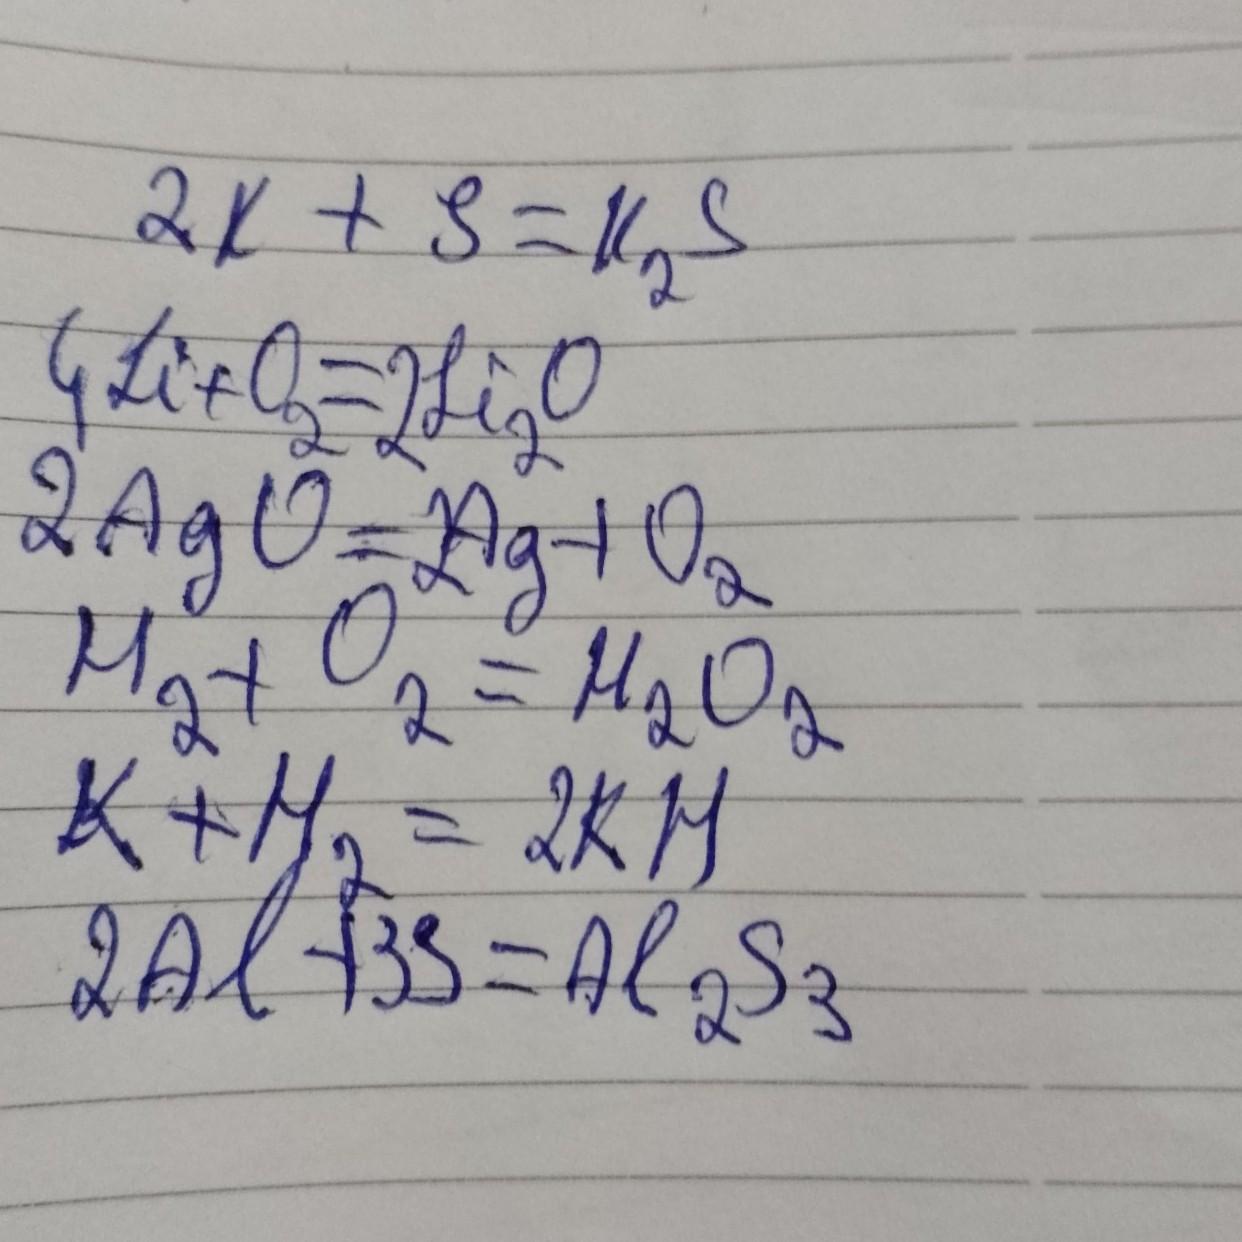 2K + S = K₂S
4Li + O₂ = 2Li₂O
2AgO = 2Ag + O₂
H₂ + O₂ = H₂O₂
K + H₂ = 2KH
2Al + 3S = Al₂S₃